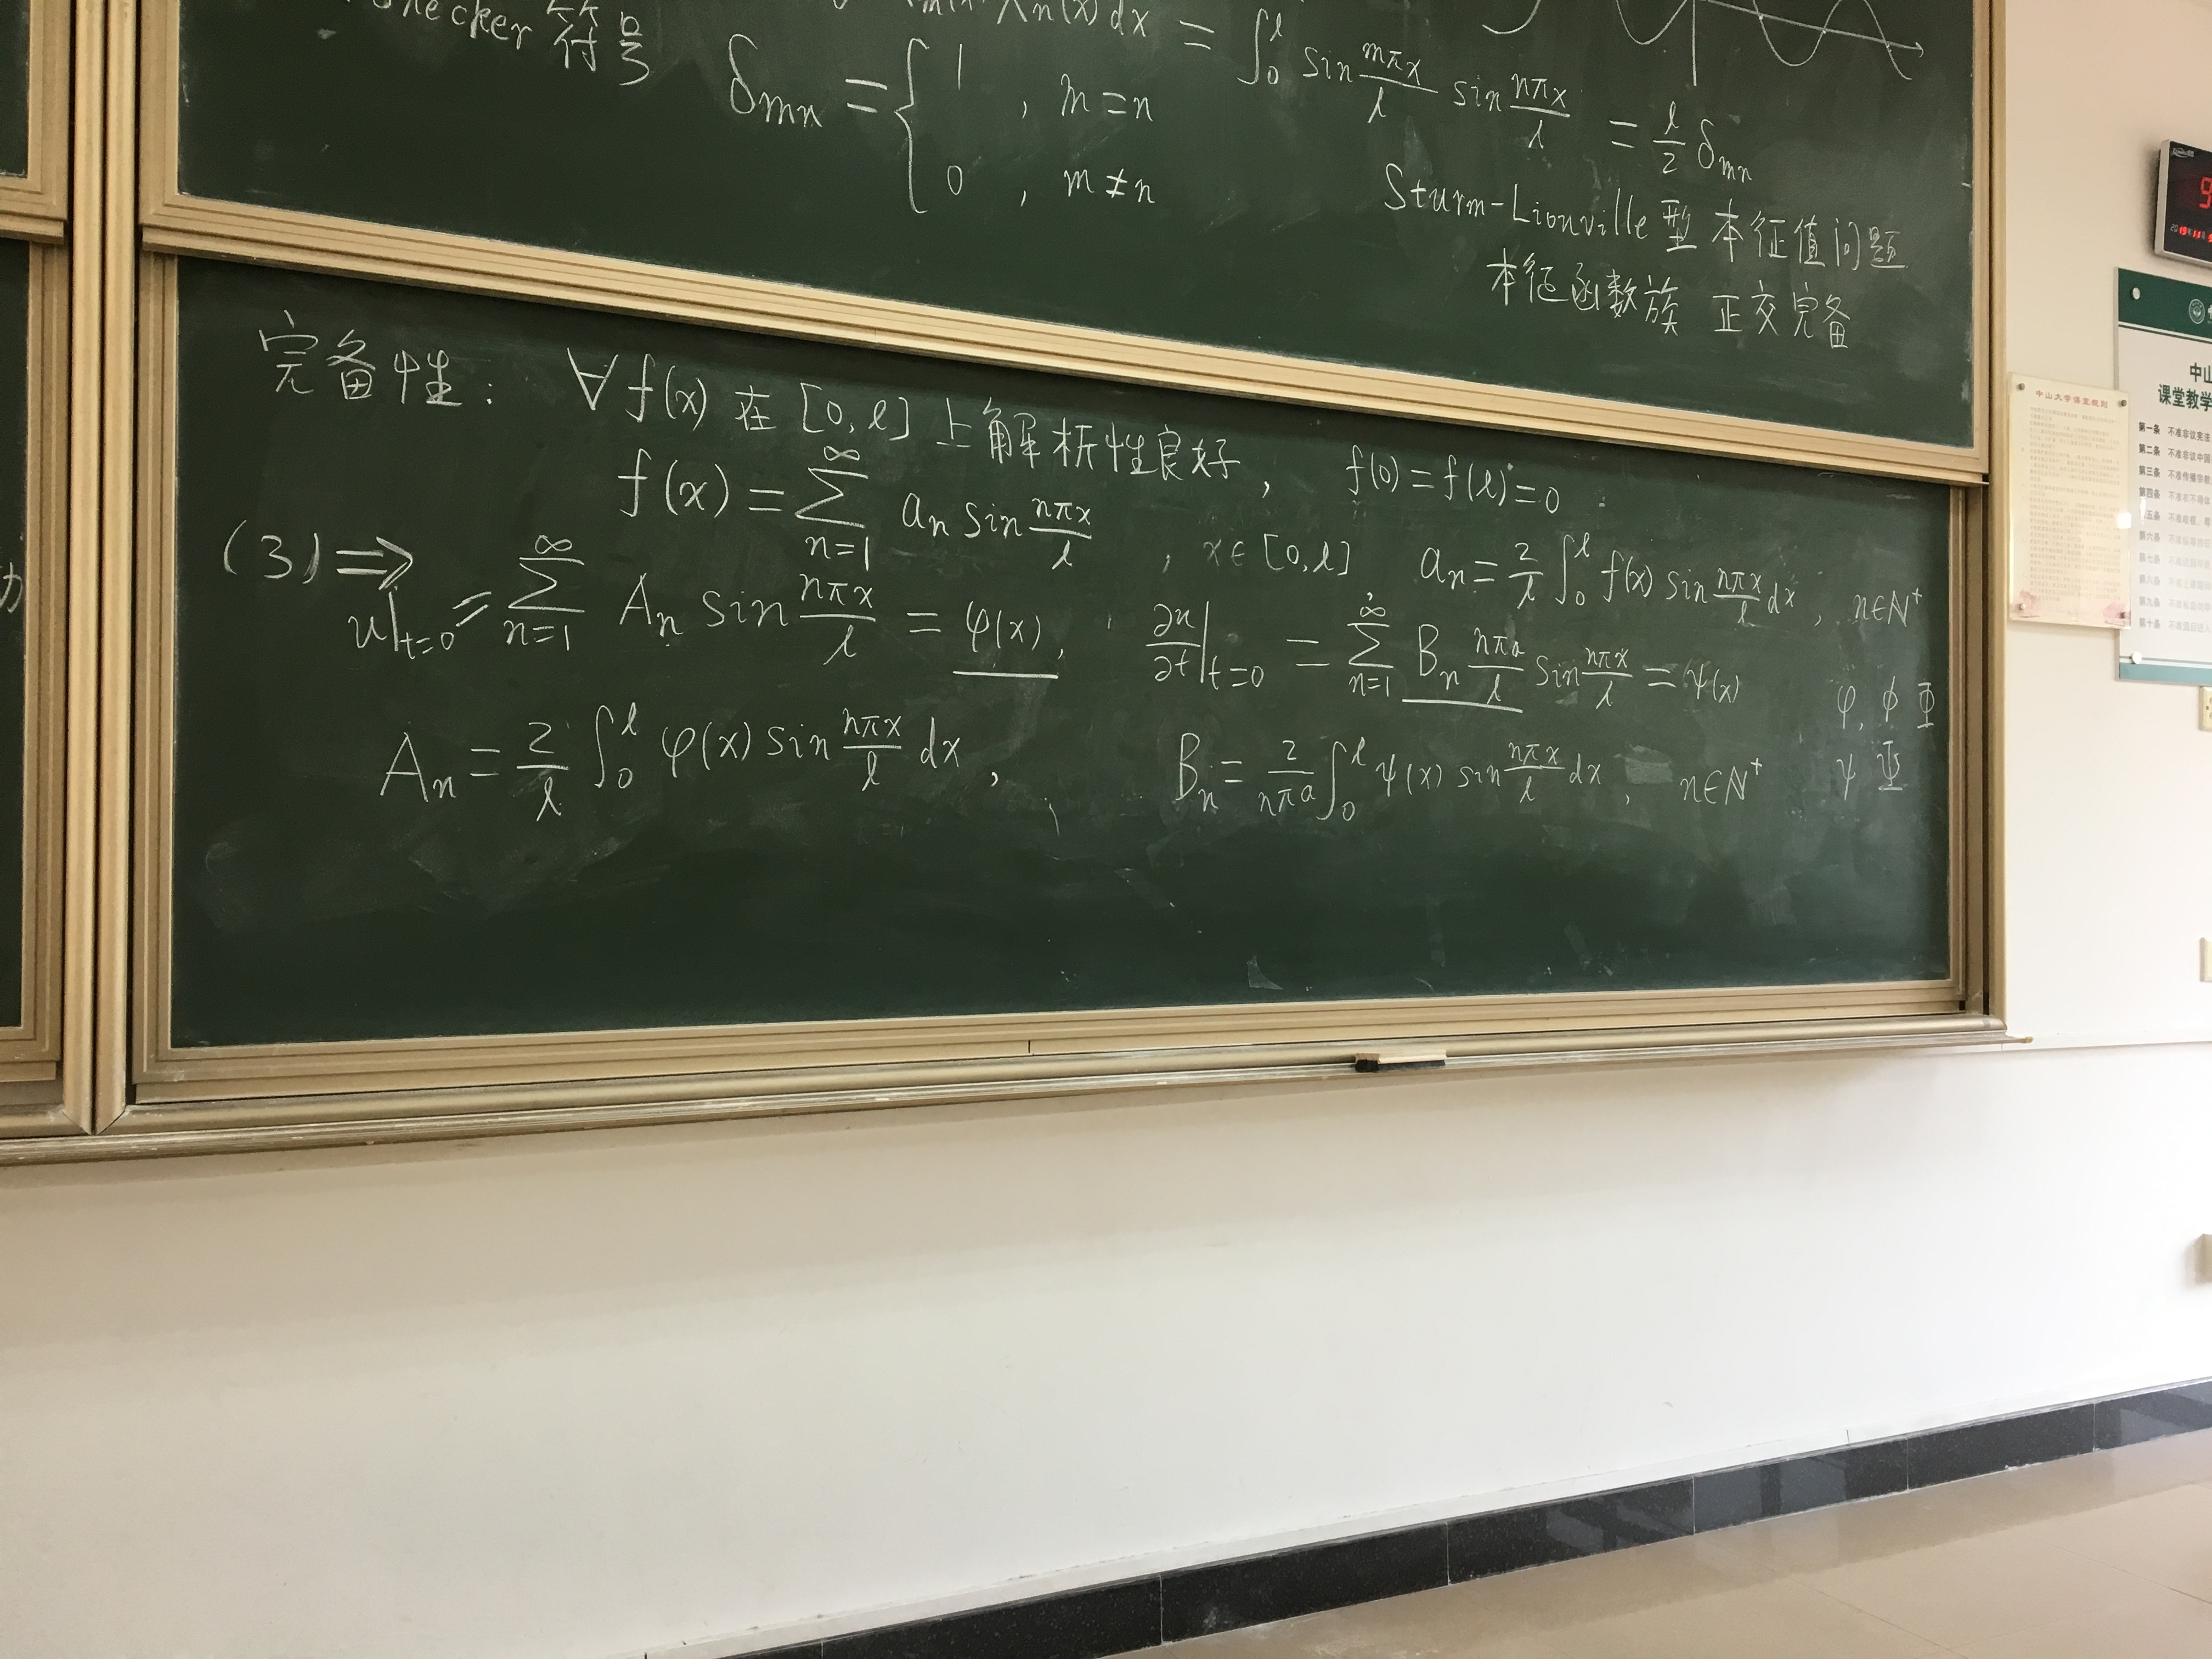 符号
δmn = { 1 , m=n
0 , m≠n
Xn(x)dx = ∫₀ˡ sin mπx/l sin nπx/l = l/2 δmn
Sturm-Lionville 型 本征值问题
本征函数族 正交完备
完备性: ∀f(x) 在 [0,l] 上解析性良好, f(0)=f(l)=0
f(x) = ∑_{n=1}^{∞} an sin nπx/l , x∈[0,l] , an = 2/l ∫₀ˡ f(x) sin nπx/l dx , n∈N⁺
(3) ⇒
u|t=0 = ∑_{n=1}^{∞} An sin nπx/l = φ(x), ∂u/∂t|t=0 = ∑_{n=1}^{∞} Bn nπa/l sin nπx/l = ψ(x)
φ, ϕ Φ
An = 2/l ∫₀ˡ φ(x) sin nπx/l dx , Bn = 2/nπa ∫₀ˡ ψ(x) sin nπx/l dx , n∈N⁺
ψ Ψ
中山大学课堂规则
中山
课堂教学
第一条 不准非议宪法
第二条 不准非议中国
第三条 不准传播宗教
第四条
第五条
第六条
第七条
第八条
第九条
第十条